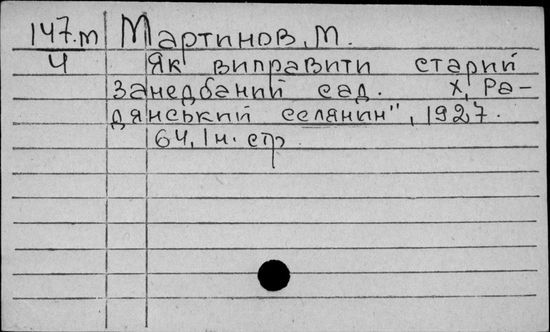 147.м Мартинов, М.
4 Як виправити старий
занедбаний сад. Х, Ра-
дянський селянин", 1927.
64, 1 н. стр